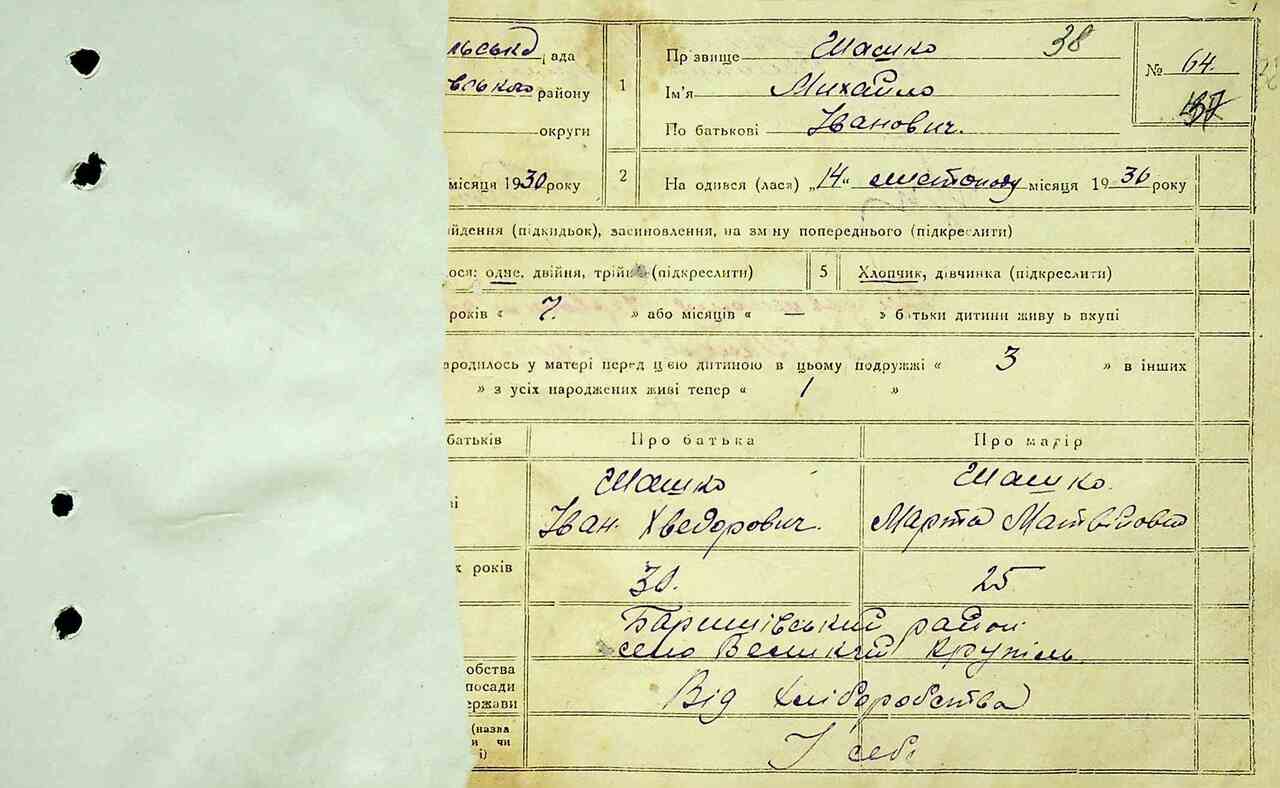 льська ,ада
1
Пр'звище Шашко 38
№ 64.
вського району
Ім'я Михайло
137
округи
По батькові Іванович.
місяця 1930 року
2
На одився (лася) „14" листопаду місяця 1930 року
йдення (підкидьок), засиновлення, на зм ну попереднього (підкреслити)
ося: одне, двійня, трійня (підкреслити)
5
Хлопчик, дівчинка (підкреслити)
років « 7. » або місяців « — » батьки дитини живу ь вкупі
ародилось у матері перед цією дитиною в цьому подружжі « 3 » в інших
» з усіх народжених живі тепер « 1 »
батьків
Про батька
Про матір
Шашко
Іван Хведорович.
Шашко.
Марта Матвіївна
х років
30.
25
Баришівський район
село Великий Крупіль
обства
посади
ержави
Від хліборобства
(назва
и чи
і)
У себе